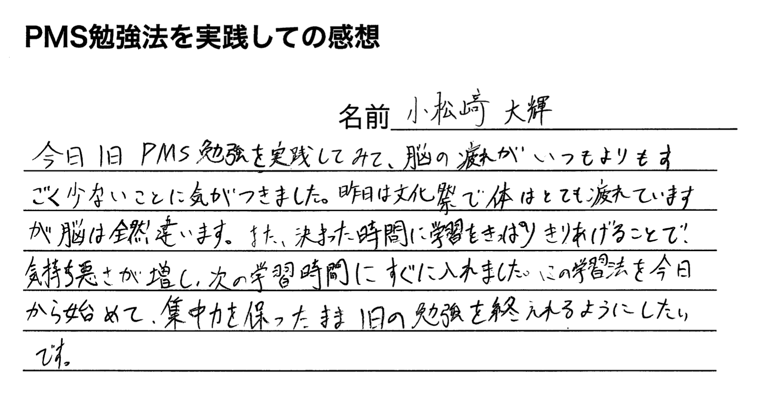 PMS勉強法を実践しての感想
名前 小松﨑 大輝
今日1日 PMS 勉強を実践してみて、脳の疲れがいつもよりもす
ごく少ないことに気がつきました。昨日は文化祭で体はとても疲れています
が脳は全然違います。また、決まった時間に学習をきっぱりきりあげることで、
気持ち悪さが増し、次の学習時間にすぐに入れました。この学習法を今日
から始めて、集中力を保ったまま1日の勉強を終えれるようにしたい
です。